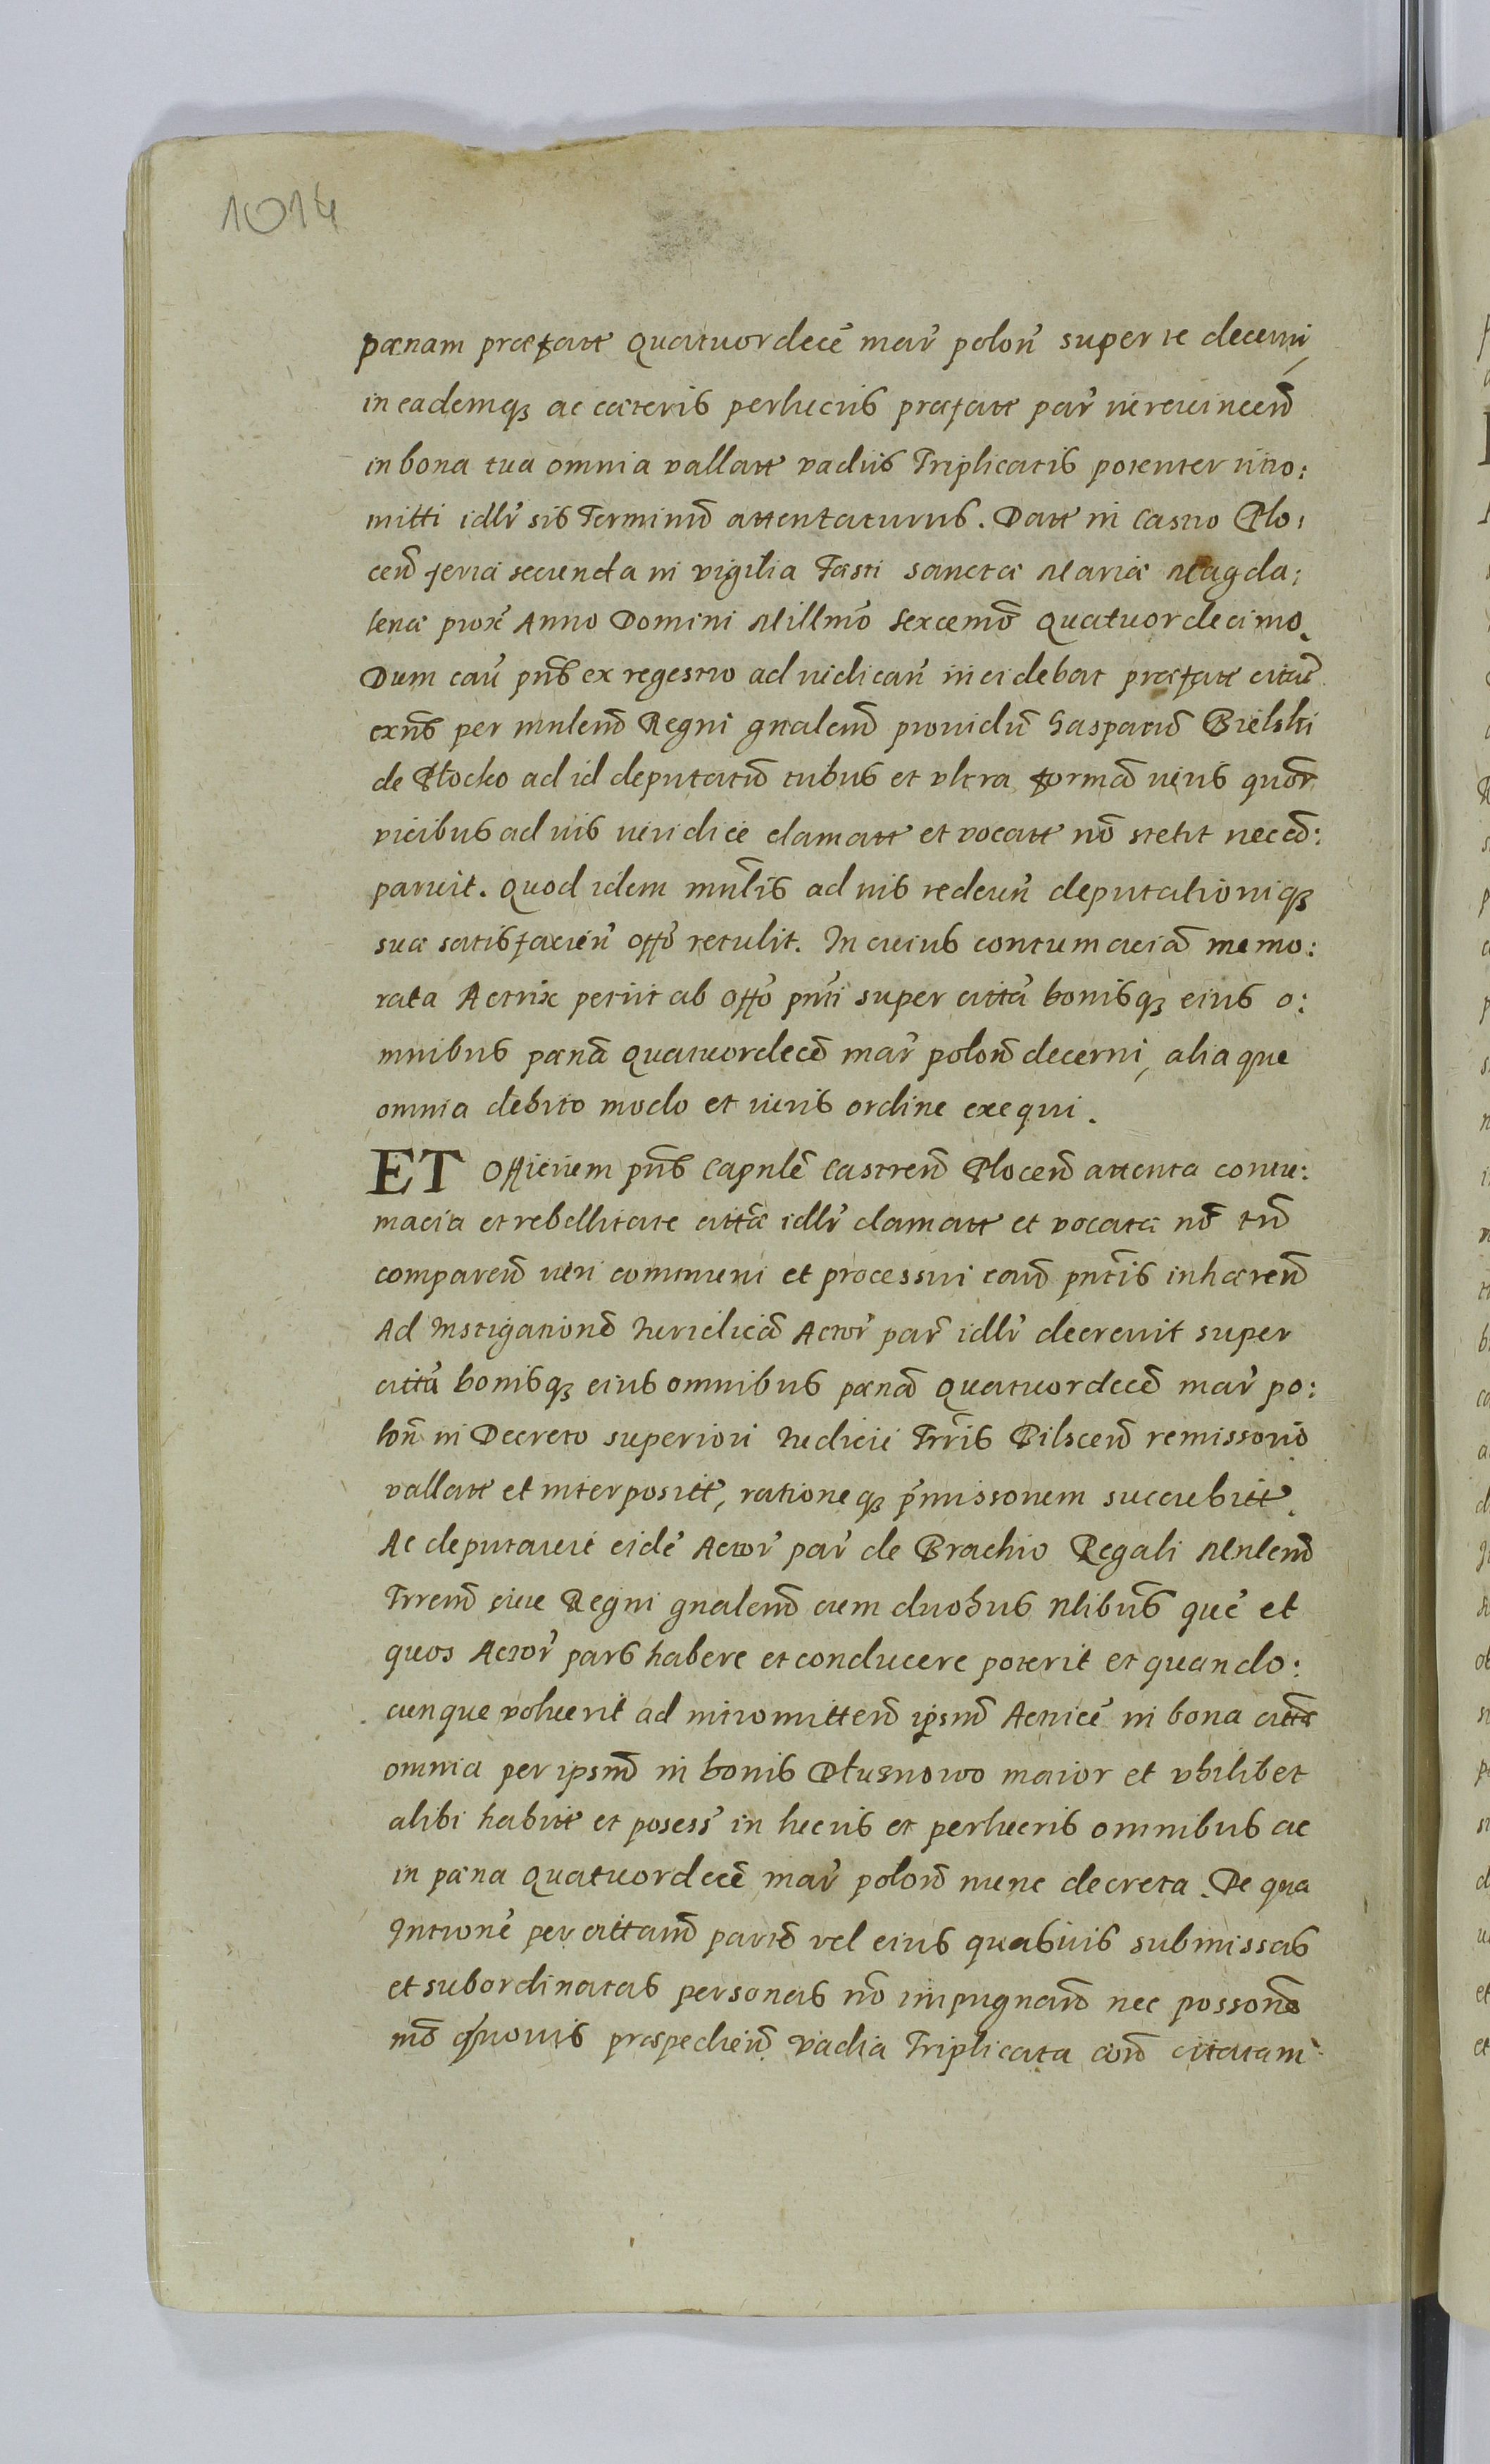 1014
pœnam præfatt quatuordecē mar̃ poloñ super te decerni,
in eademq₃ ac cæteris perlucris præfatt par̃ iure vincend
in bona tua omnia vallatt vadiis Triplicatis potenter intro:
mitti idlr̃ sis Terminū attentaturus. Datt in Castro Plo:
ceñ feria secunda in vigilia Fæsti sanctæ Mariæ Magda:
lenæ prox̃ Anno Domini Millmō Sexcemō quatuordecimo.
Dum cau͂ pn̄s ex regestro ad iudicañ incidebat præfatt citat̃
exn̄s per mnlem̄ Regni gnalem̄ providū Gasparū Bielski
de Płocko ad id deputatū tribus et vltra formā iuris quōr
vicibus ad iūs iuridice clamatt et vocatt nō stetit nec cō:
paruit. Quod idem mn̄lis ad iūs redeuñ deputationiq₃
suæ satisfacieñ offō retulit. In cuius contumaciā memo:
rata Actrix petiit ab offō pn̄ti super citta͂ bonisq₃ eius o:
mnibus pœnā quatuordecē mar̃ poloñ decerni, aliaque
omnia debito modo et iuris ordine exequi.
ET Officium pn̄s Capnlē Castreñ Ploceñ attenta contu:
macia et rebellitate cittæ idlr̃ clamatt et vocatæ nō tn̄
compareñ iuri communi et processui cau͂ pn̄tis inhæreñ
Ad Instigationē Iuridicā Actor̃ par̃ idlr̃ decrevit super
citta͂ bonisq₃ eius omnibus pœnā quatuordecē mar̃ po:
loñ in Decreto superiori Iudicii Trrīs Bilsceñ remissorio
vallatt et interpositt, rationeq₃ p̄missorum succubitt.
Ac deputavit eidē Actor̃ par̃ de Brachio Regali Mnlem̄
Trrem̄ sive Regni gnalem̄ cum duobus Nlibūs quē et
quos Actor̃ pars habere et conducere poterit et quando:
cunque voluerit ad intromitteñ ipsam̄ Actricē in bona cittæ
omnia per ipsam̄ in bonis Dłusnowo maior et vbilibet
alibi habitt et posess̃ in lucris et perlucris omnibus ac
in pœna quatuordecē mar̃ poloñ nunc decreta. De qua
Intrōne per cittam̄ partē vel eius quasvis submissas
et subordinatas personas nō impugnañ nec possonē
mō quovis præpedieñ vadia Triplicata citatam